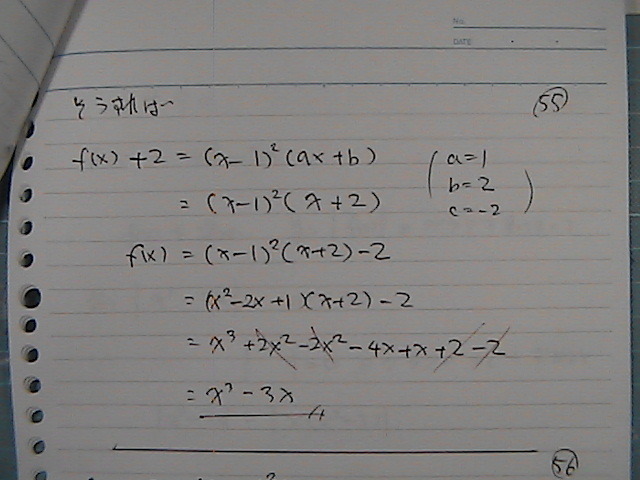 No.
DATE
そうすれば〜
55
f(x) + 2 = (x-1)²(ax+b)
= (x-1)²(x+2)
( a=1
b=2
c=-2 )
f(x) = (x-1)²(x+2)-2
= (x²-2x+1)(x+2)-2
= x³+2x²-2x²-4x+x+2-2
= x³-3x
56